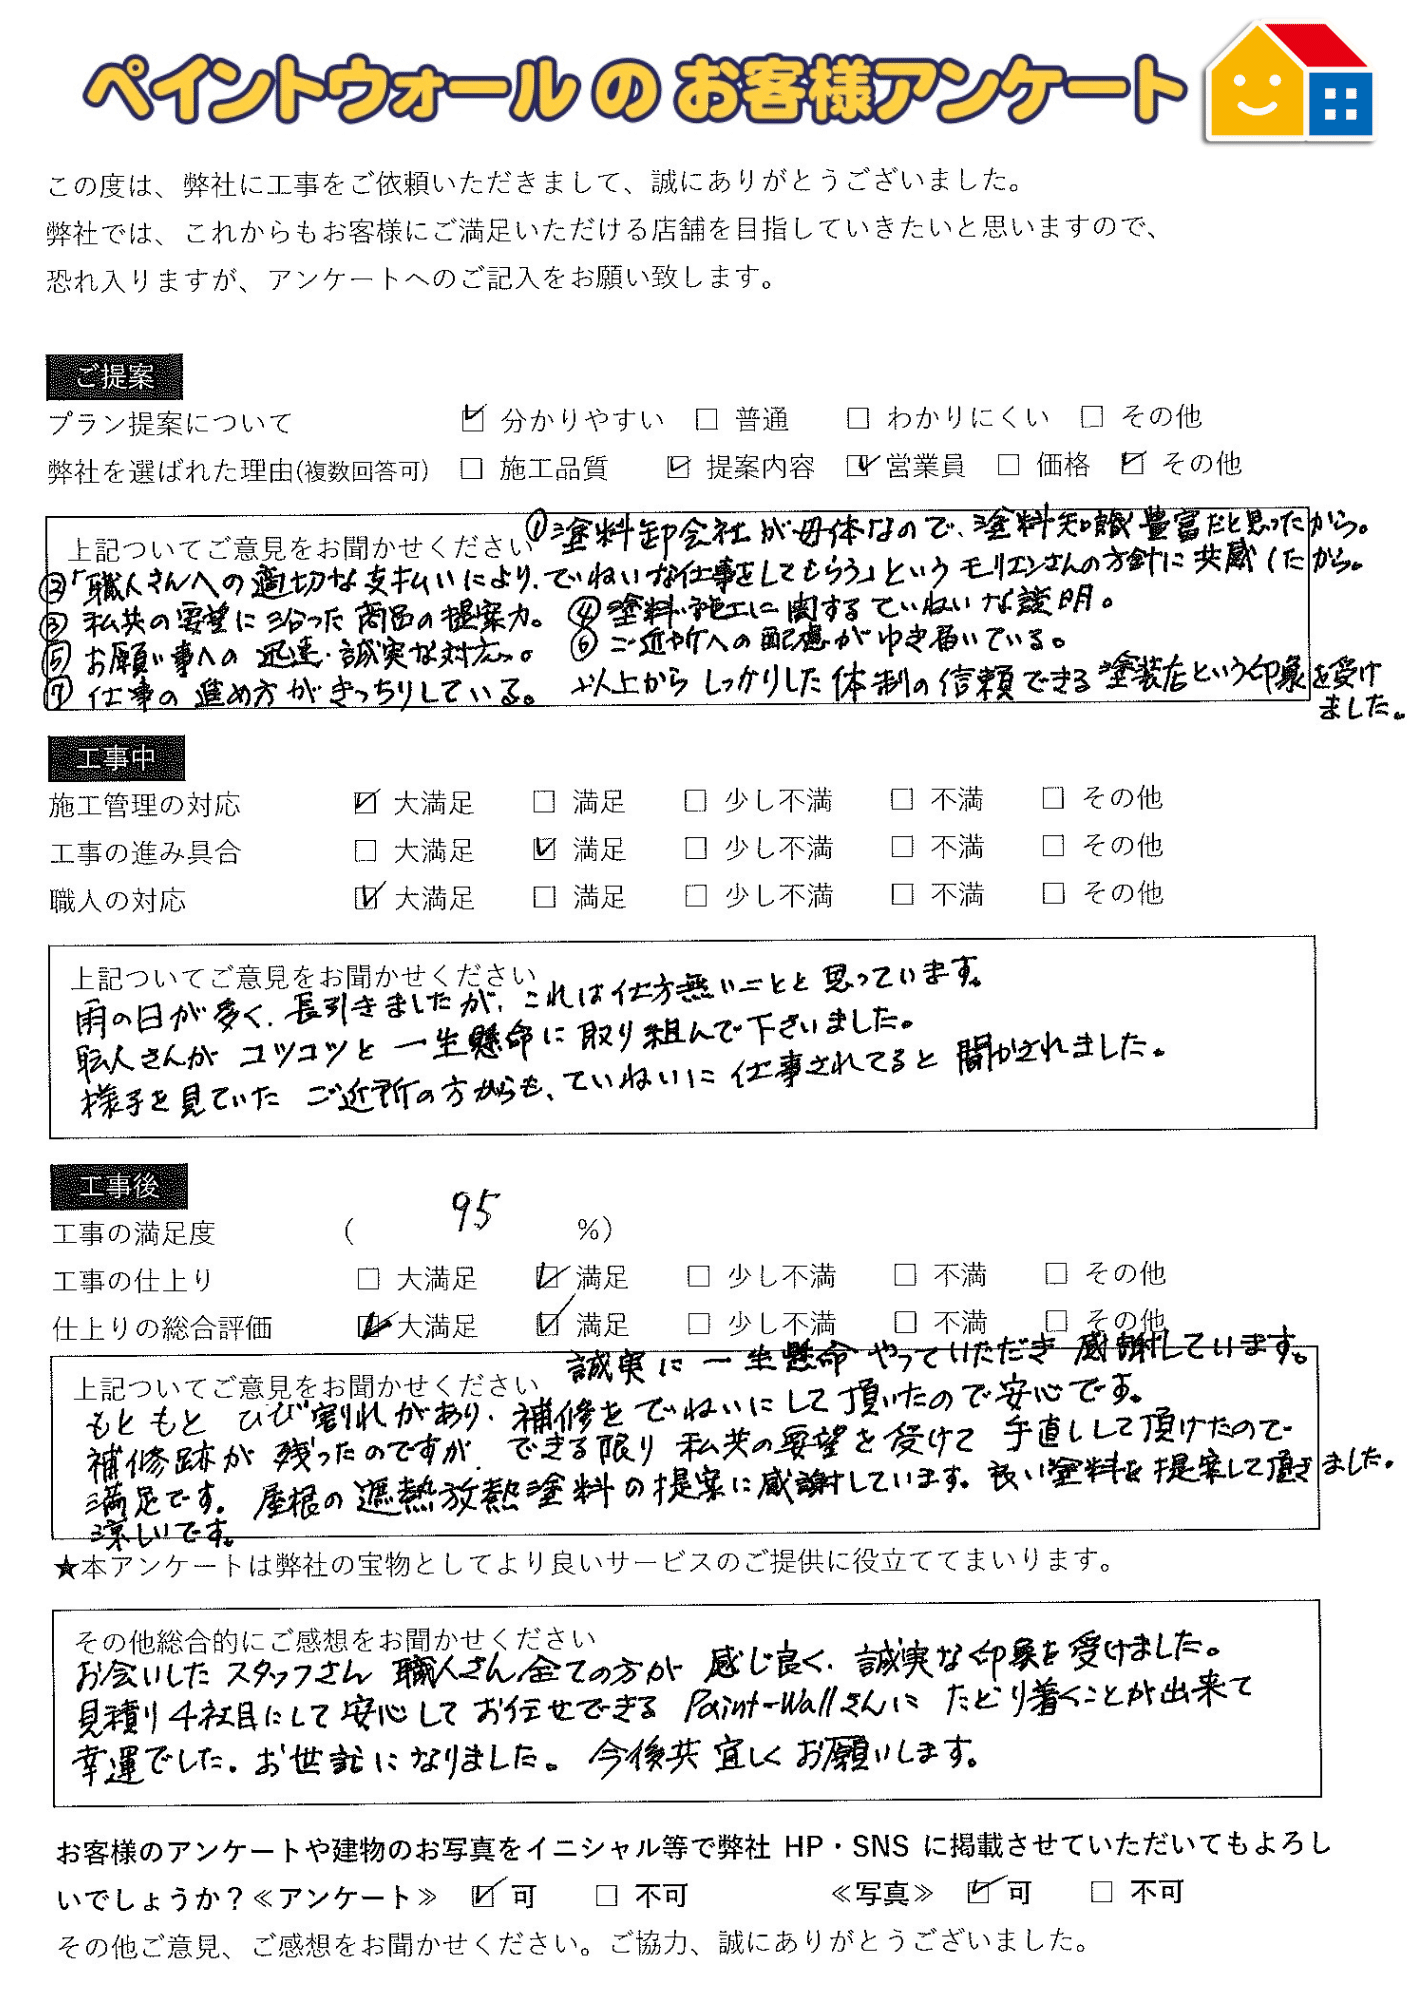 ペイントウォール の お客様アンケート
この度は、弊社に工事をご依頼いただきまして、誠にありがとうございました。
弊社では、これからもお客様にご満足いただける店舗を目指していきたいと思いますので、
恐れ入りますが、アンケートへのご記入をお願い致します。
ご提案
プラン提案について ☑ 分かりやすい □ 普通 □ わかりにくい □ その他
弊社を選ばれた理由(複数回答可) □ 施工品質 ☑ 提案内容 ☑ 営業員 □ 価格 ☑ その他
上記ついてご意見をお聞かせください ①塗料卸会社が母体なので、塗料知識豊富だと思ったから。
②「職人さんへの適切な支払いにより、ていねいな仕事をしてもらう」というモリエンさんの方針に共感したから。
③ 私共の要望に沿った商品の提案力。 ④塗料・施工に関するていねいな説明。
⑤ お願い事への 迅速・誠実な対応。 ⑥ ご近所への配慮がゆき届いている。
⑦ 仕事の進め方がきっちりしている。 以上から しっかりした体制の信頼できる塗装店という印象を受け
ました。
工事中
施工管理の対応 ☑ 大満足 □ 満足 □ 少し不満 □ 不満 □ その他
工事の進み具合 □ 大満足 ☑ 満足 □ 少し不満 □ 不満 □ その他
職人の対応 ☑ 大満足 □ 満足 □ 少し不満 □ 不満 □ その他
上記ついてご意見をお聞かせください
雨の日が多く、長引きましたが、これは仕方無いことと思っています。
職人さんが コツコツと 一生懸命に取り組んで下さいました。
様子を見ていた ご近所の方からも、ていねいに仕事されてると聞かされました。
工事後
工事の満足度 ( 95 %)
工事の仕上り □ 大満足 ☑ 満足 □ 少し不満 □ 不満 □ その他
仕上りの総合評価 ☑ 大満足 ☑ 満足 □ 少し不満 □ 不満 □ その他
誠実に一生懸命やっていただき 感謝しています。
上記ついてご意見をお聞かせください
もともと ひび割れがあり、補修をていねいにして頂いたので安心です。
補修跡が残ったのですが、できる限り 私共の要望を受けて 手直しして頂けたので
満足です。 屋根の遮熱放熱塗料の提案に感謝しています。良い塗料を提案して頂きました。
涼しいです。
★本アンケートは弊社の宝物としてより良いサービスのご提供に役立ててまいります。
その他総合的にご感想をお聞かせください
お会いした スタッフさん 職人さん全ての方が 感じ良く、誠実な印象を受けました。
見積り4社目にして安心してお任せできる Paint-Wallさんに たどり着くことが出来て
幸運でした。お世話になりました。 今後共 宜しくお願いします。
お客様のアンケートや建物のお写真をイニシャル等で弊社 HP・SNS に掲載させていただいてもよろし
いでしょうか？≪アンケート≫ ☑ 可 □ 不可 ≪写真≫ ☑ 可 □ 不可
その他ご意見、ご感想をお聞かせください。ご協力、誠にありがとうございました。